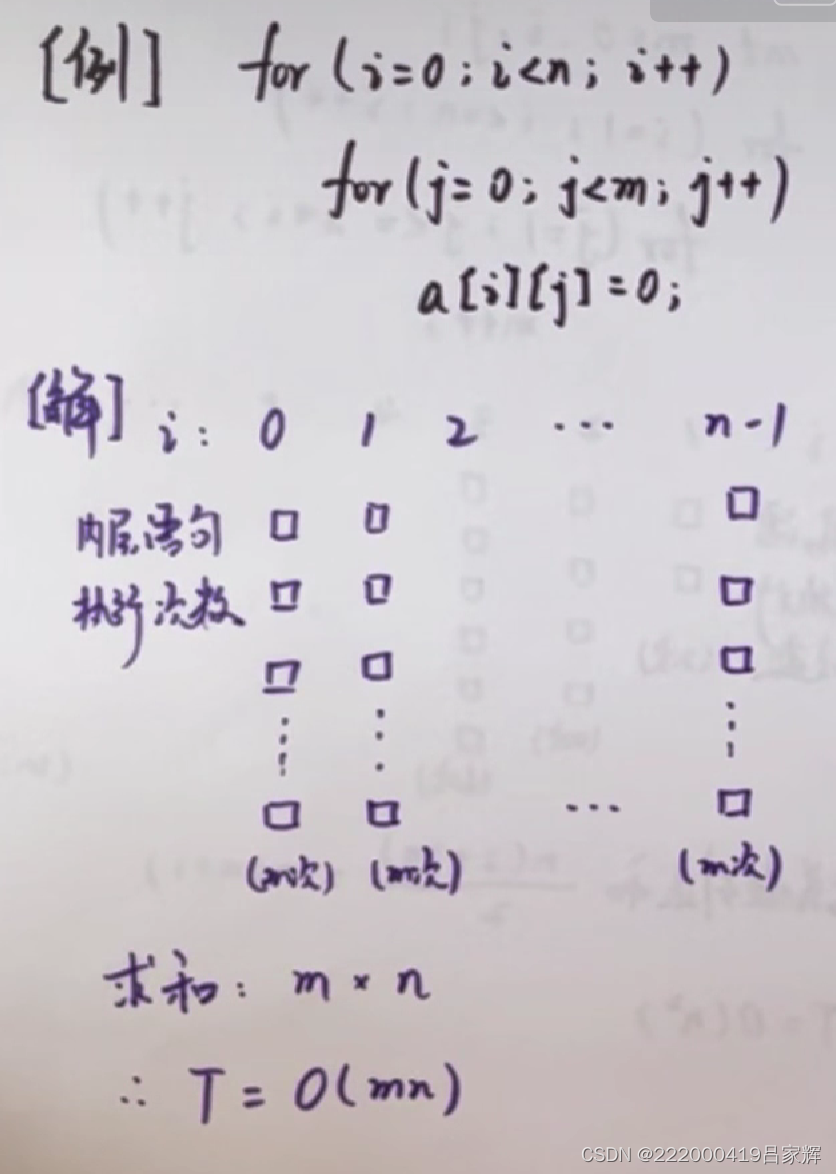 [例] for (i=0; i<n; i++)
for (j=0; j<m; j++)
a[i][j]=0;
[解] i: 0 1 2 … n-1
内层语句
执行次数
(m次) (m次) … (m次)
求和: m × n
∴ T = O(mn)
CSDN @222000419吕家辉